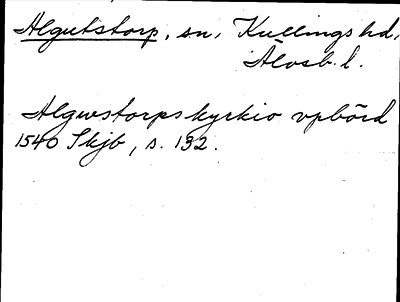 Algutstorp, sn, Kullings hd,
Älvsb. l.
Algwstorps kyrkio vpbörd
1540 Skjb, s. 132.